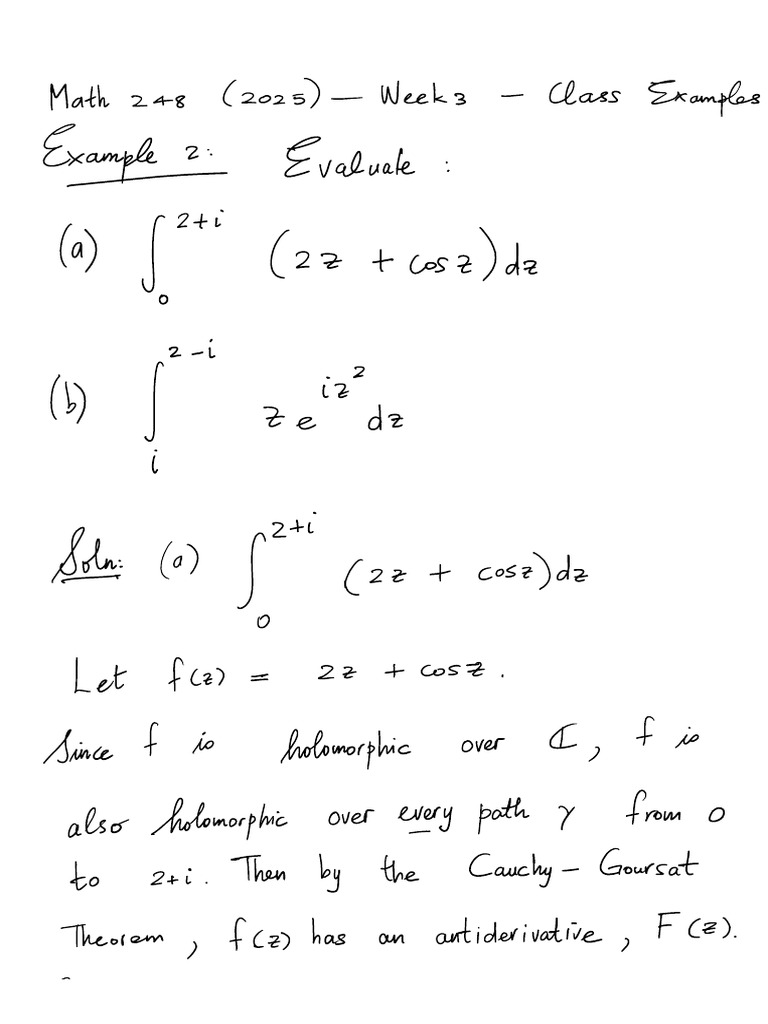 Math 248 (2025) — Week 3 – Class Examples
Example 2: Evaluate :
(a) ∫₀²⁺ⁱ (2z + cosz)dz
(b) ∫ᵢ²⁻ⁱ z e^{iz²} dz
Soln: (a) ∫₀²⁺ⁱ (2z + cosz)dz
Let f(z) = 2z + cosz.
Since f is holomorphic over ℂ, f is
also holomorphic over every path γ from 0
to 2+i. Then by the Cauchy–Goursat
Theorem, f(z) has an antiderivative, F(z).